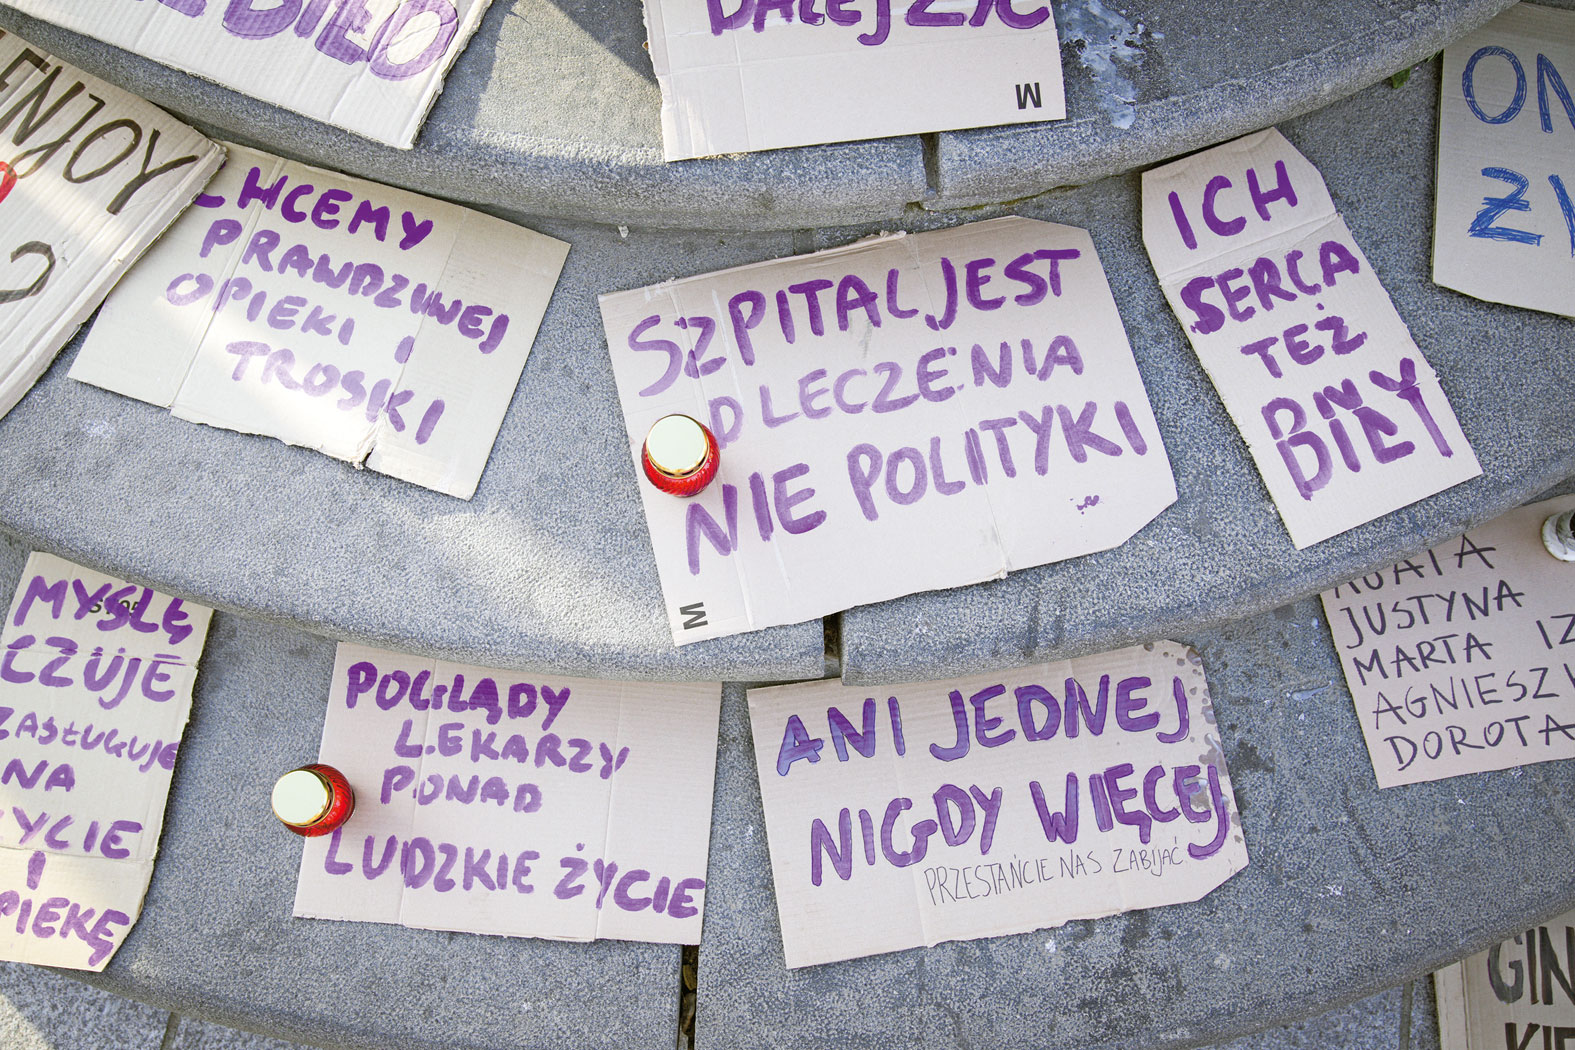 BIŁO
DALEJ ŻYĆ
M
ENJOY
?
ON
ŻY
CHCEMY
PRAWDZIWEJ
OPIEKI I
TROSKI
SZPITAL JEST
OD LECZENIA
NIE POLITYKI
M
ICH
SERCA
TEŻ
BIŁY
MYŚLĘ
CZUJĘ
ZASŁUGUJĘ
NA
ŻYCIE
I
OPIEKĘ
POGLĄDY
LEKARZY
PONAD
LUDZKIE ŻYCIE
ANI JEDNEJ
NIGDY WIĘCEJ
PRZESTAŃCIE NAS ZABIJAĆ
AGATA
JUSTYNA
MARTA IZ
AGNIESZK
DOROTA
GIN
KIE